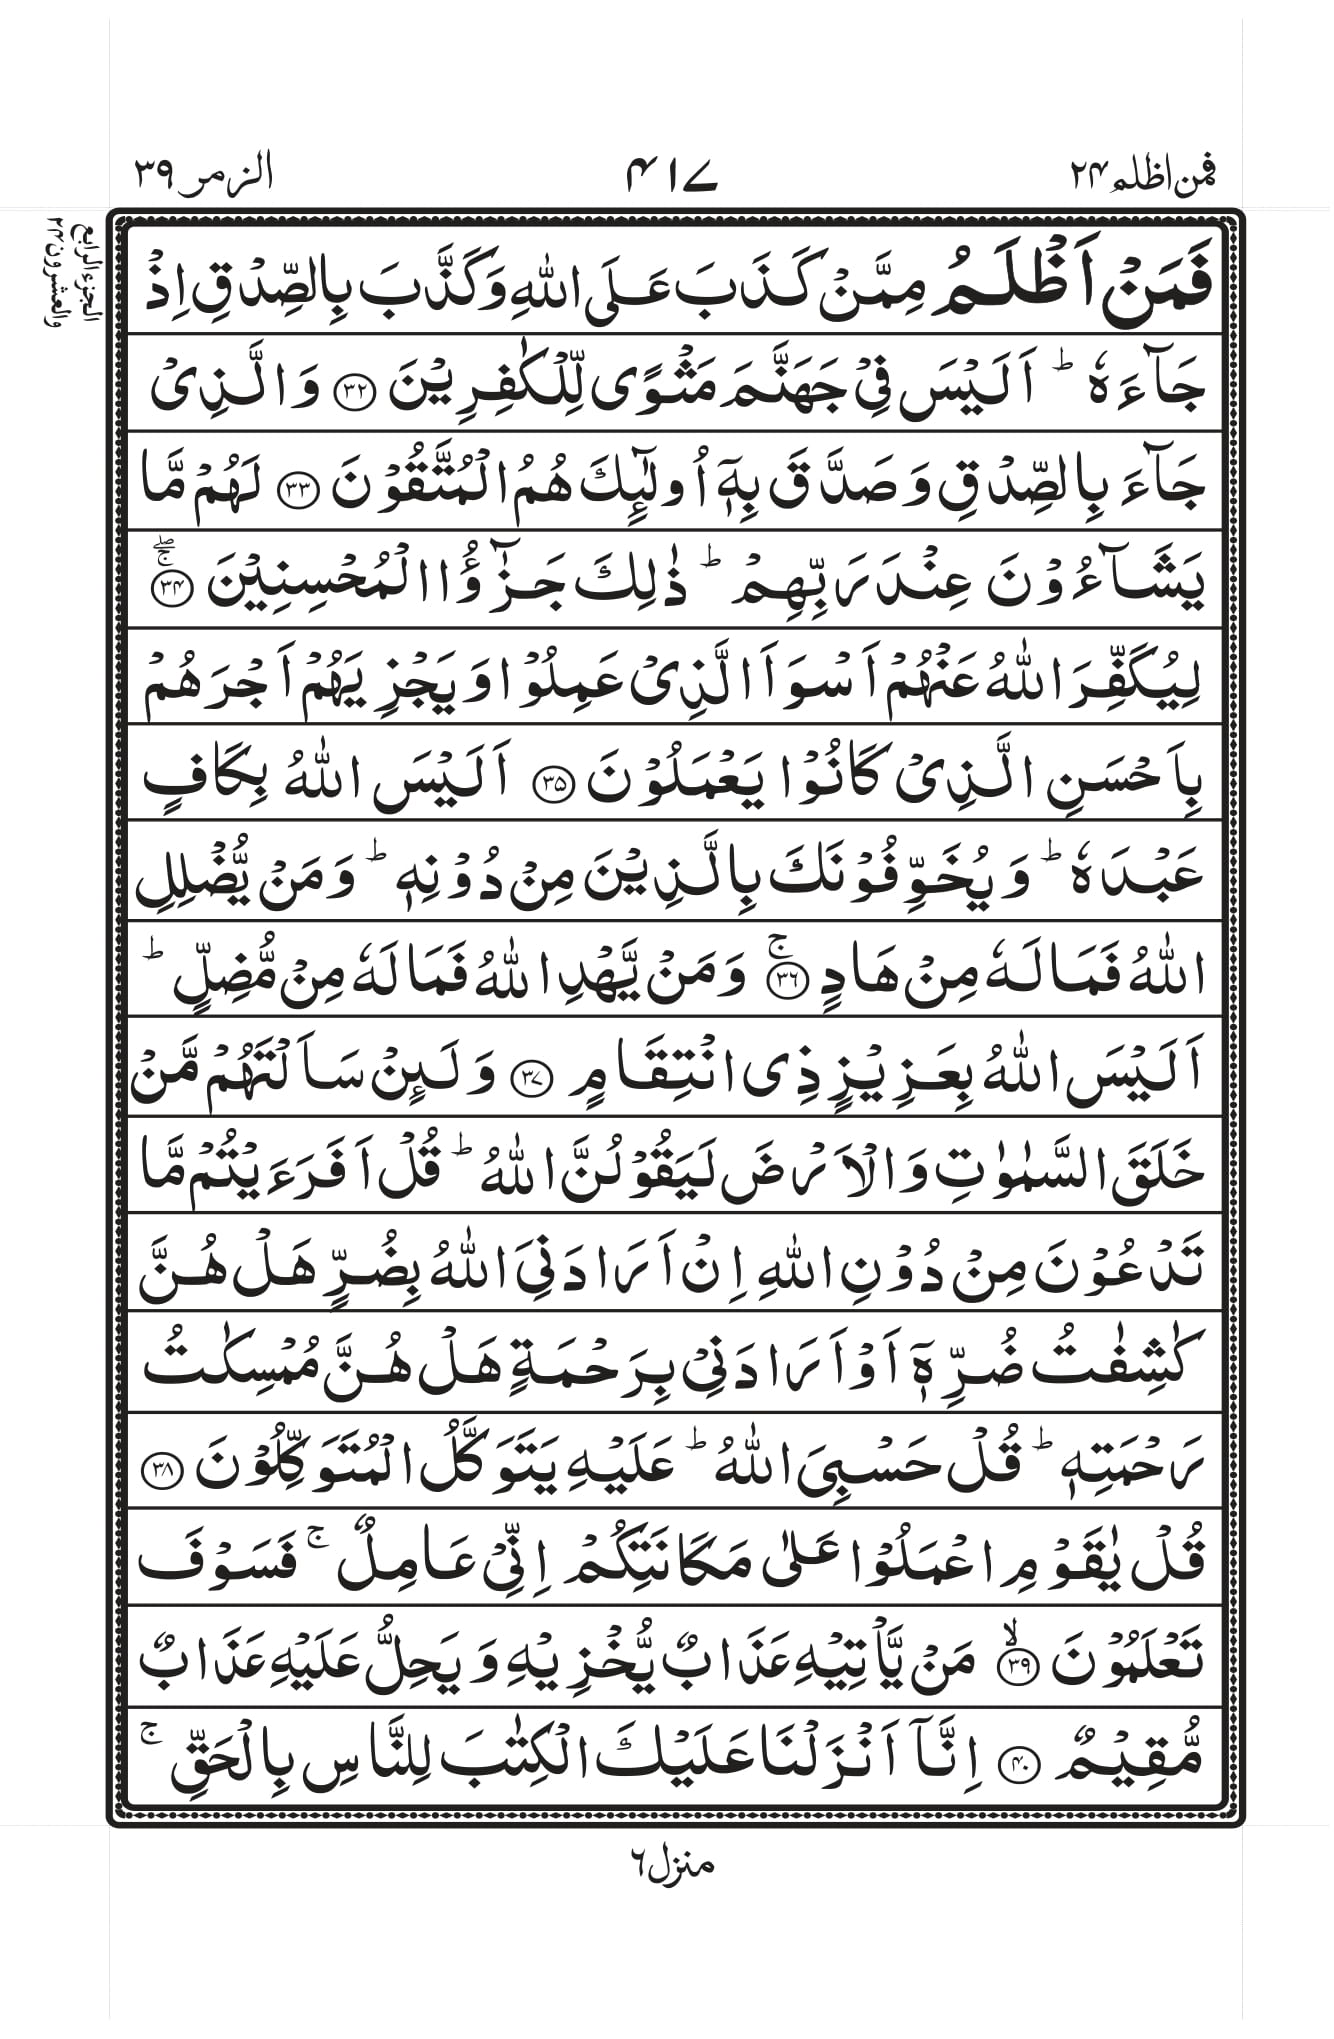 فمن اظلم ۲۴
۴۱۷
الزمر ۳۹
الجزء الرابع
والعشرون ۲۴
فَمَنۡ اَظۡلَمُ مِمَّنۡ كَذَبَ عَلَى اللّٰهِ وَكَذَّبَ بِالصِّدۡقِ اِذۡ
جَآءَهٗ ؕ اَلَيۡسَ فِىۡ جَهَنَّمَ مَثۡوًى لِّلۡكٰفِرِيۡنَ ۝۳۲ وَالَّذِىۡ
جَآءَ بِالصِّدۡقِ وَصَدَّقَ بِهٖۤ اُولٰٓئِكَ هُمُ الۡمُتَّقُوۡنَ ۝۳۳ لَهُمۡ مَّا
يَشَآءُوۡنَ عِنۡدَ رَبِّهِمۡ ؕ ذٰلِكَ جَزٰٓؤُا الۡمُحۡسِنِيۡنَ ۝۳۴ ۖۚ
لِيُكَفِّرَ اللّٰهُ عَنۡهُمۡ اَسۡوَاَ الَّذِىۡ عَمِلُوۡا وَيَجۡزِيَهُمۡ اَجۡرَهُمۡ
بِاَحۡسَنِ الَّذِىۡ كَانُوۡا يَعۡمَلُوۡنَ ۝۳۵ اَلَيۡسَ اللّٰهُ بِكَافٍ
عَبۡدَهٗ ؕ وَيُخَوِّفُوۡنَكَ بِالَّذِيۡنَ مِنۡ دُوۡنِهٖ ؕ وَمَنۡ يُّضۡلِلِ
اللّٰهُ فَمَا لَهٗ مِنۡ هَادٍ ۝۳۶ ۚ وَمَنۡ يَّهۡدِ اللّٰهُ فَمَا لَهٗ مِنۡ مُّضِلٍّ ؕ
اَلَيۡسَ اللّٰهُ بِعَزِيۡزٍ ذِى انۡتِقَامٍ ۝۳۷ وَلَئِنۡ سَاَلۡتَهُمۡ مَّنۡ
خَلَقَ السَّمٰوٰتِ وَالۡاَرۡضَ لَيَقُوۡلُنَّ اللّٰهُ ؕ قُلۡ اَفَرَءَيۡتُمۡ مَّا
تَدۡعُوۡنَ مِنۡ دُوۡنِ اللّٰهِ اِنۡ اَرَادَنِىَ اللّٰهُ بِضُرٍّ هَلۡ هُنَّ
كٰشِفٰتُ ضُرِّهٖۤ اَوۡ اَرَادَنِىۡ بِرَحۡمَةٍ هَلۡ هُنَّ مُمۡسِكٰتُ
رَحۡمَتِهٖ ؕ قُلۡ حَسۡبِىَ اللّٰهُ ؕ عَلَيۡهِ يَتَوَكَّلُ الۡمُتَوَكِّلُوۡنَ ۝۳۸
قُلۡ يٰقَوۡمِ اعۡمَلُوۡا عَلٰى مَكَانَتِكُمۡ اِنِّىۡ عَامِلٌ ۚ فَسَوۡفَ
تَعۡلَمُوۡنَ ۝۳۹ ۙ مَنۡ يَّاۡتِيۡهِ عَذَابٌ يُّخۡزِيۡهِ وَيَحِلُّ عَلَيۡهِ عَذَابٌ
مُّقِيۡمٌ ۝۴۰ اِنَّاۤ اَنۡزَلۡنَا عَلَيۡكَ الۡكِتٰبَ لِلنَّاسِ بِالۡحَقِّ ۚ
منزل ۶